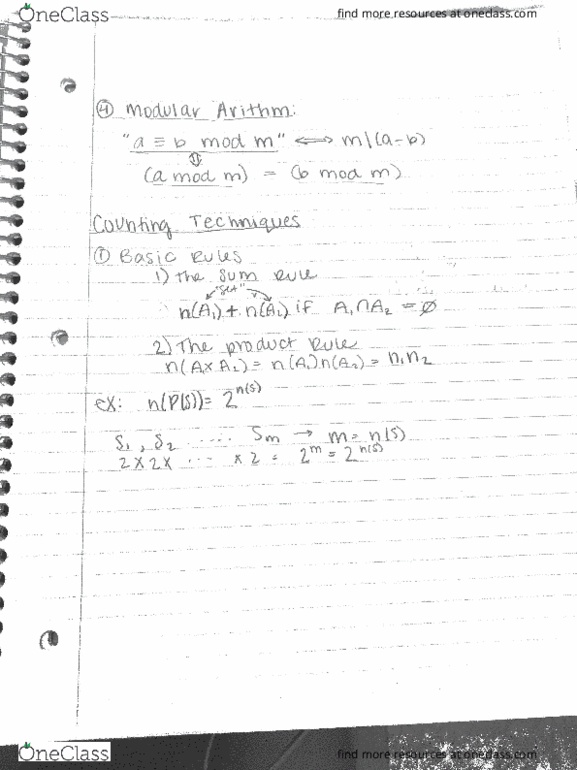 OneClass
find more resources at oneclass.com
④ Modular Arithm:
"a ≡ b mod m" ⟺ m|(a-b)
⇕
(a mod m) = (b mod m)
Counting Techniques
① Basic Rules
1) the sum rule
"set"
n(A₁) + n(A₂) if A₁∩A₂ = ∅
2) The product rule
n(A x A₂) = n(A₁)n(A₂) = n₁n₂
ex: n(P(S)) = 2^n(S)
S₁, S₂ ..... Sm → m = n(S)
2 x 2 x ... x 2 = 2^m = 2^n(S)
OneClass
find more resources at oneclass.com